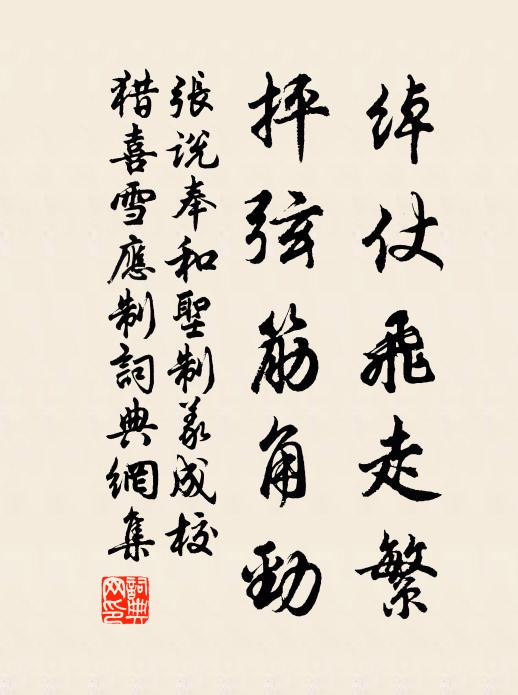 绰仗飛走繁
抨弦筋角勁
張説奉和聖制義成校
猎喜雪應制詞典網集
詞典网印